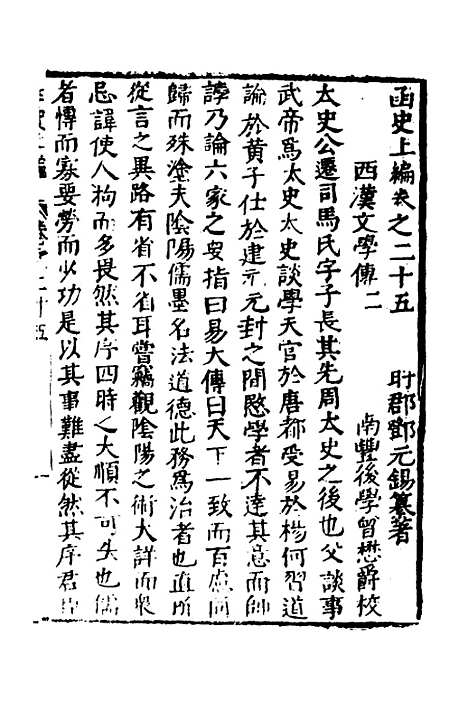 函史上編卷之二十五
盱郡鄧元錫纂著
西漢文學傳二
南豐後學曾懋爵校
太史公遷司馬氏字子長其先周太史之後也父談事
武帝為太史太史談學天官於唐都受易於楊何習道
論於黃子仕於建元元封之間愍學者不達其意而師
誖乃論六家之要指曰易大傳曰天下一致而百慮同
歸而殊塗夫陰陽儒墨名法道德此務為治者也直所
從言之異路有省不省耳嘗竊觀陰陽之術大詳而衆
忌諱使人拘而多畏然其序四時之大順不可失也儒
者博而寡要勞而少功是以其事難盡從然其序君臣